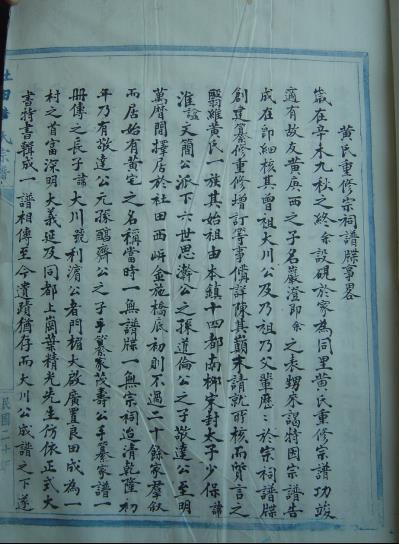 黃氏重修宗祠譜牒事畧
歲在辛未九秋之終余設硯於家為同里黃氏重修宗譜功竣
適有故友黃庚西之子名巖澄即余之表甥來謁特因宗譜告
成在即細核其曾祖大川公及乃祖乃父輩歷於宗祠譜牒
創建纂修重修增訂等事備詳陳其巔末請就所核而質言之
翳維黃氏一族其始祖由本鎮十四都南柳宋封太子少保諱
淮諡文簡公派下六世思瀚公之孫道倫公之子敬達公至明
萬曆間擇居於社田西岍金施橋底初則不過二十餘家羣叙
而居始有黃宅之名稱當時一無譜牒一無宗祠迨清乾隆初
年乃有敬達公元孫醕齋公之子手纂家茂壽公手纂家譜一
冊傳之長子諱大川號利濱公者門楣大啟廣置良田成為一
村之首富深明大義延及同都上岡葉精光先生仿依正式大
書特書輯成一譜相傳至今遺蹟猶存而大川公成譜之下遂
社田黃氏宗譜
民國二十